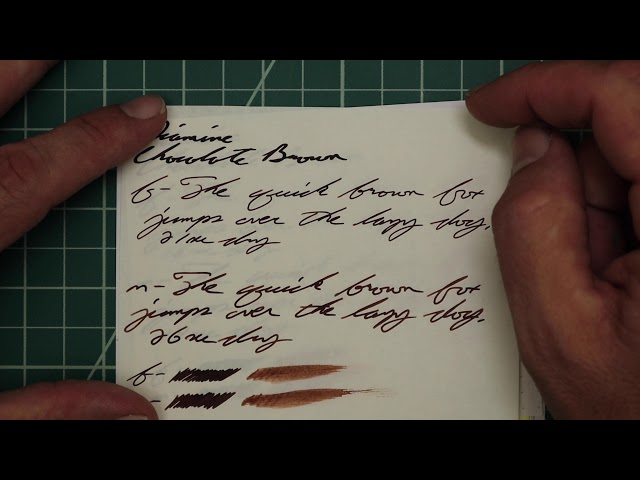 Diamine
Chocolate Brown
f - The quick brown fox
jumps over the lazy dog.
21sec dry
m - The quick brown fox
jumps over the lazy dog.
26sec dry
f -
-